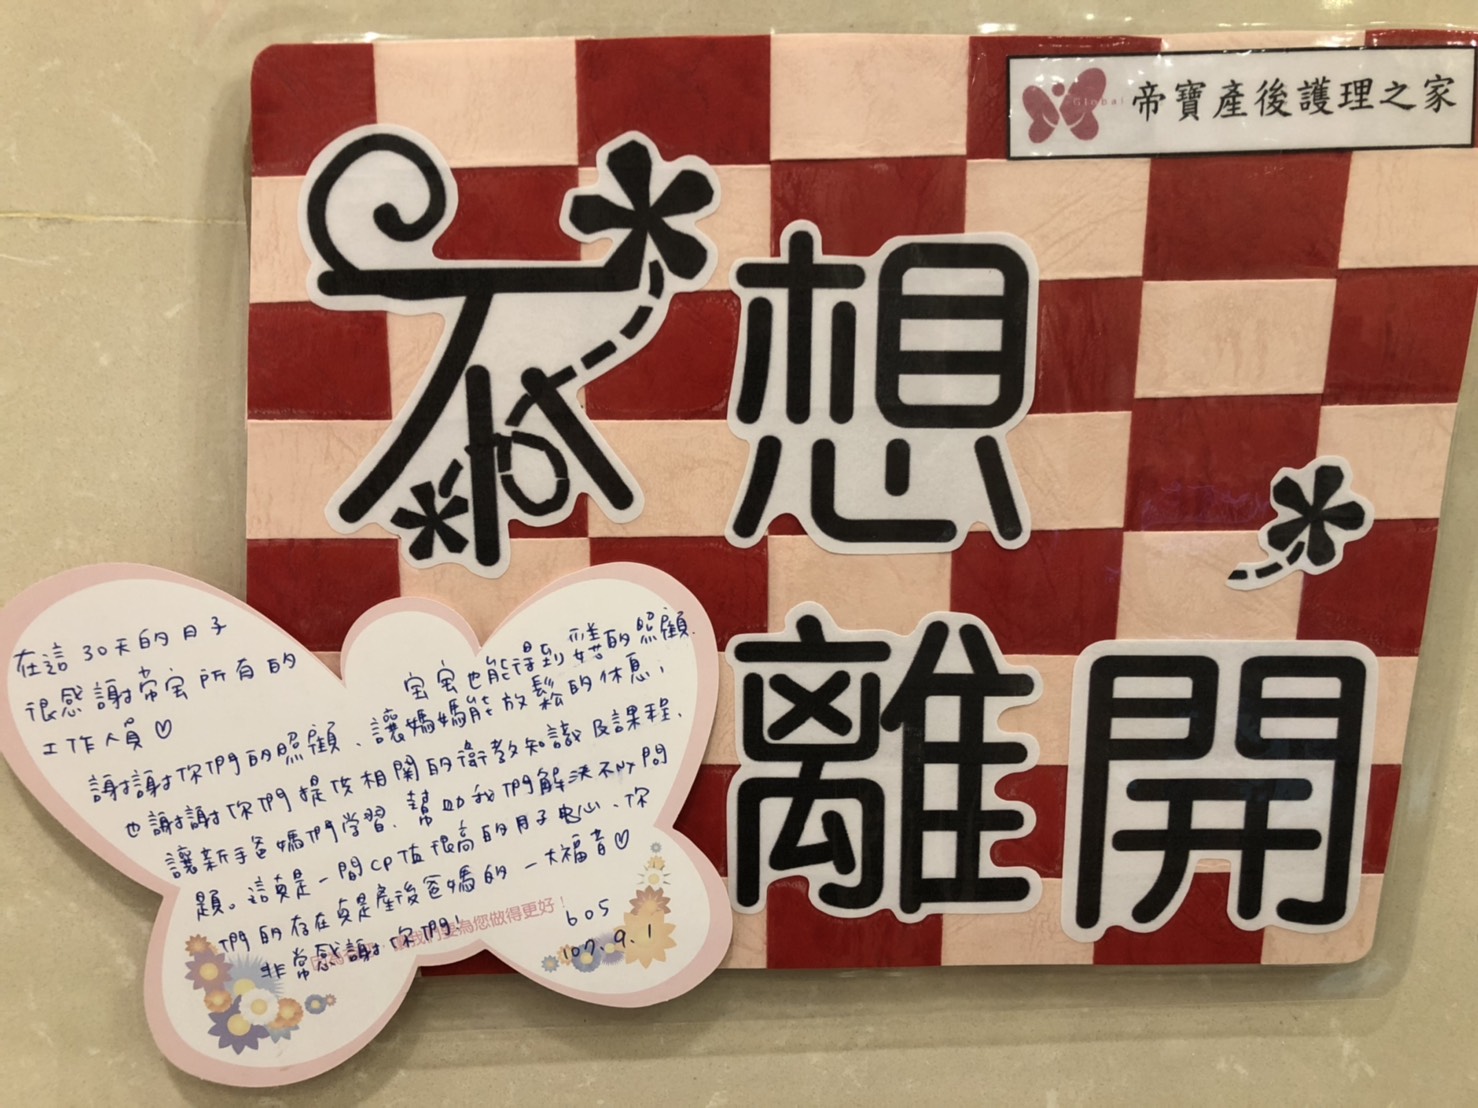 Global 帝寶產後護理之家
不想
離開
在這30天的月子
很感謝帝宝所有的
工作人員♡
謝謝你們的照顧、讓媽媽能放鬆的休息,
宝宝也能得到妥善的照顧
也謝謝你們提供相關的衛教知識及課程、
讓新手爸媽們學習、幫助我們解決不少問
題。這真是一間CP值很高的月子中心、你
們的存在真是產後爸媽的一大福音♡
非常感謝你們!
我們要為您做得更好!
605
107.9.1